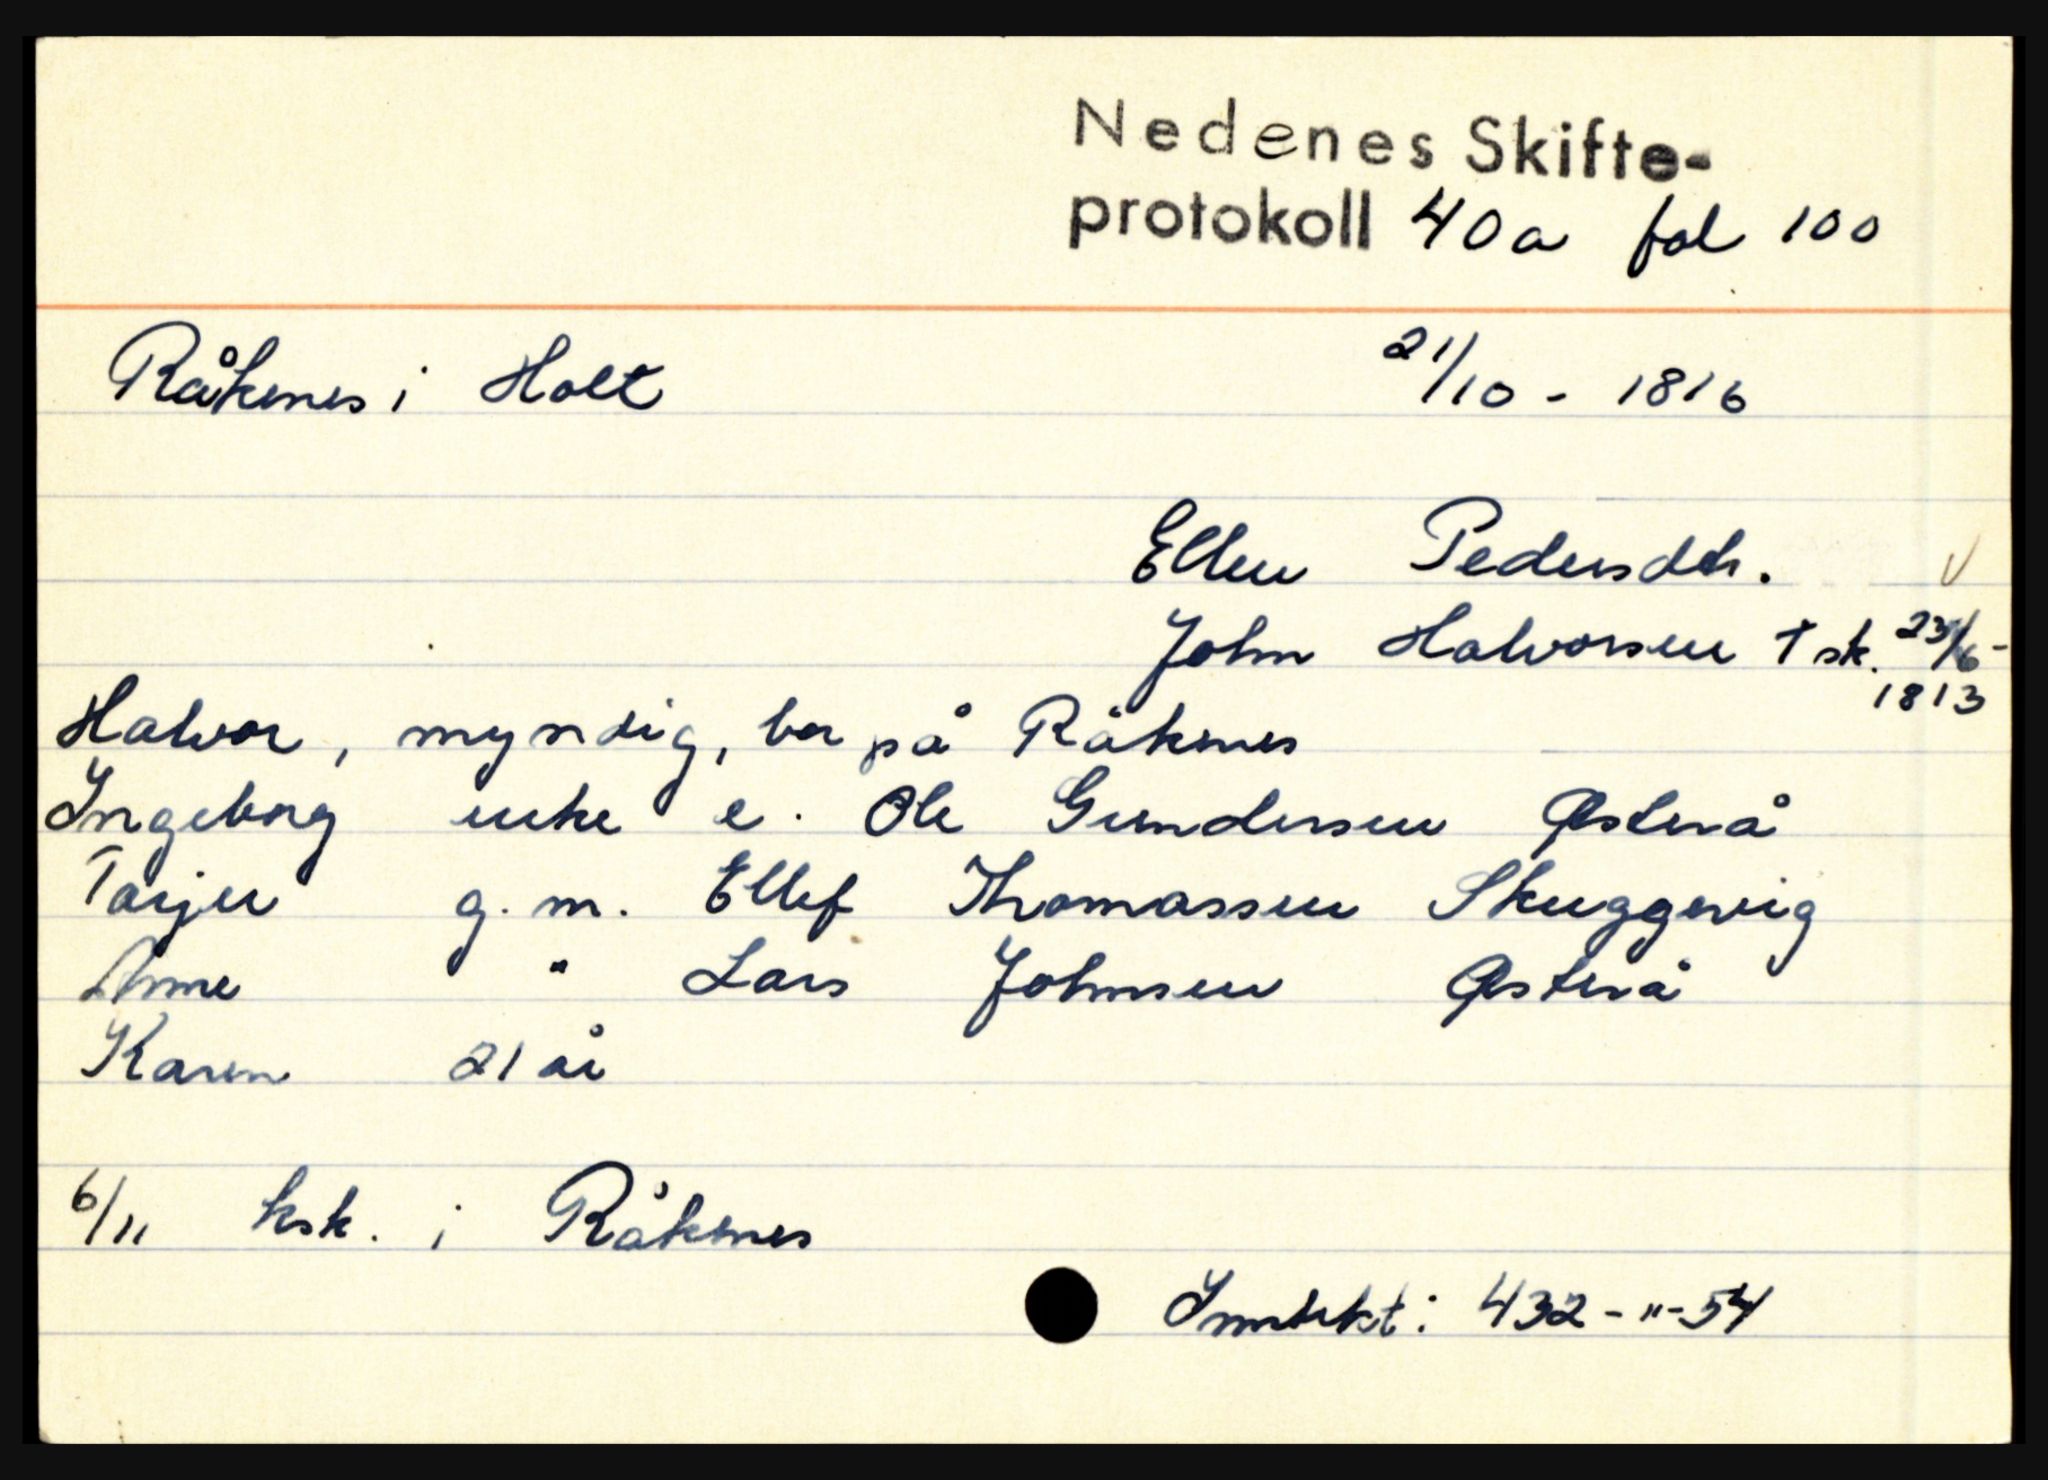 Nedenes Skifte-
protokoll 40a fol 100
Råkenes i Holt 21/10 - 1816
Ellen Pedersdtr.
John Halvorsen † sk. 23/6 -
1813
Halvor, myndig, bor på Råkenes
Ingeborg enke e. Ole Gundersen Østerå
Tarjer g. m. Ellef Thomassen Skuggevig
Anne " Lars Johnsen Østerå
Karen 21 år
6/11 ksk. i Råkenes
Inntekt: 432 - " - 54